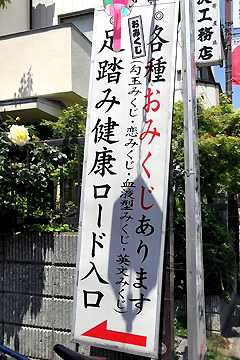 おみくじ
各種おみくじあります
(勾玉みくじ・恋みくじ・血液型みくじ・英文みくじ)
足踏み健康ロード入口
工務店